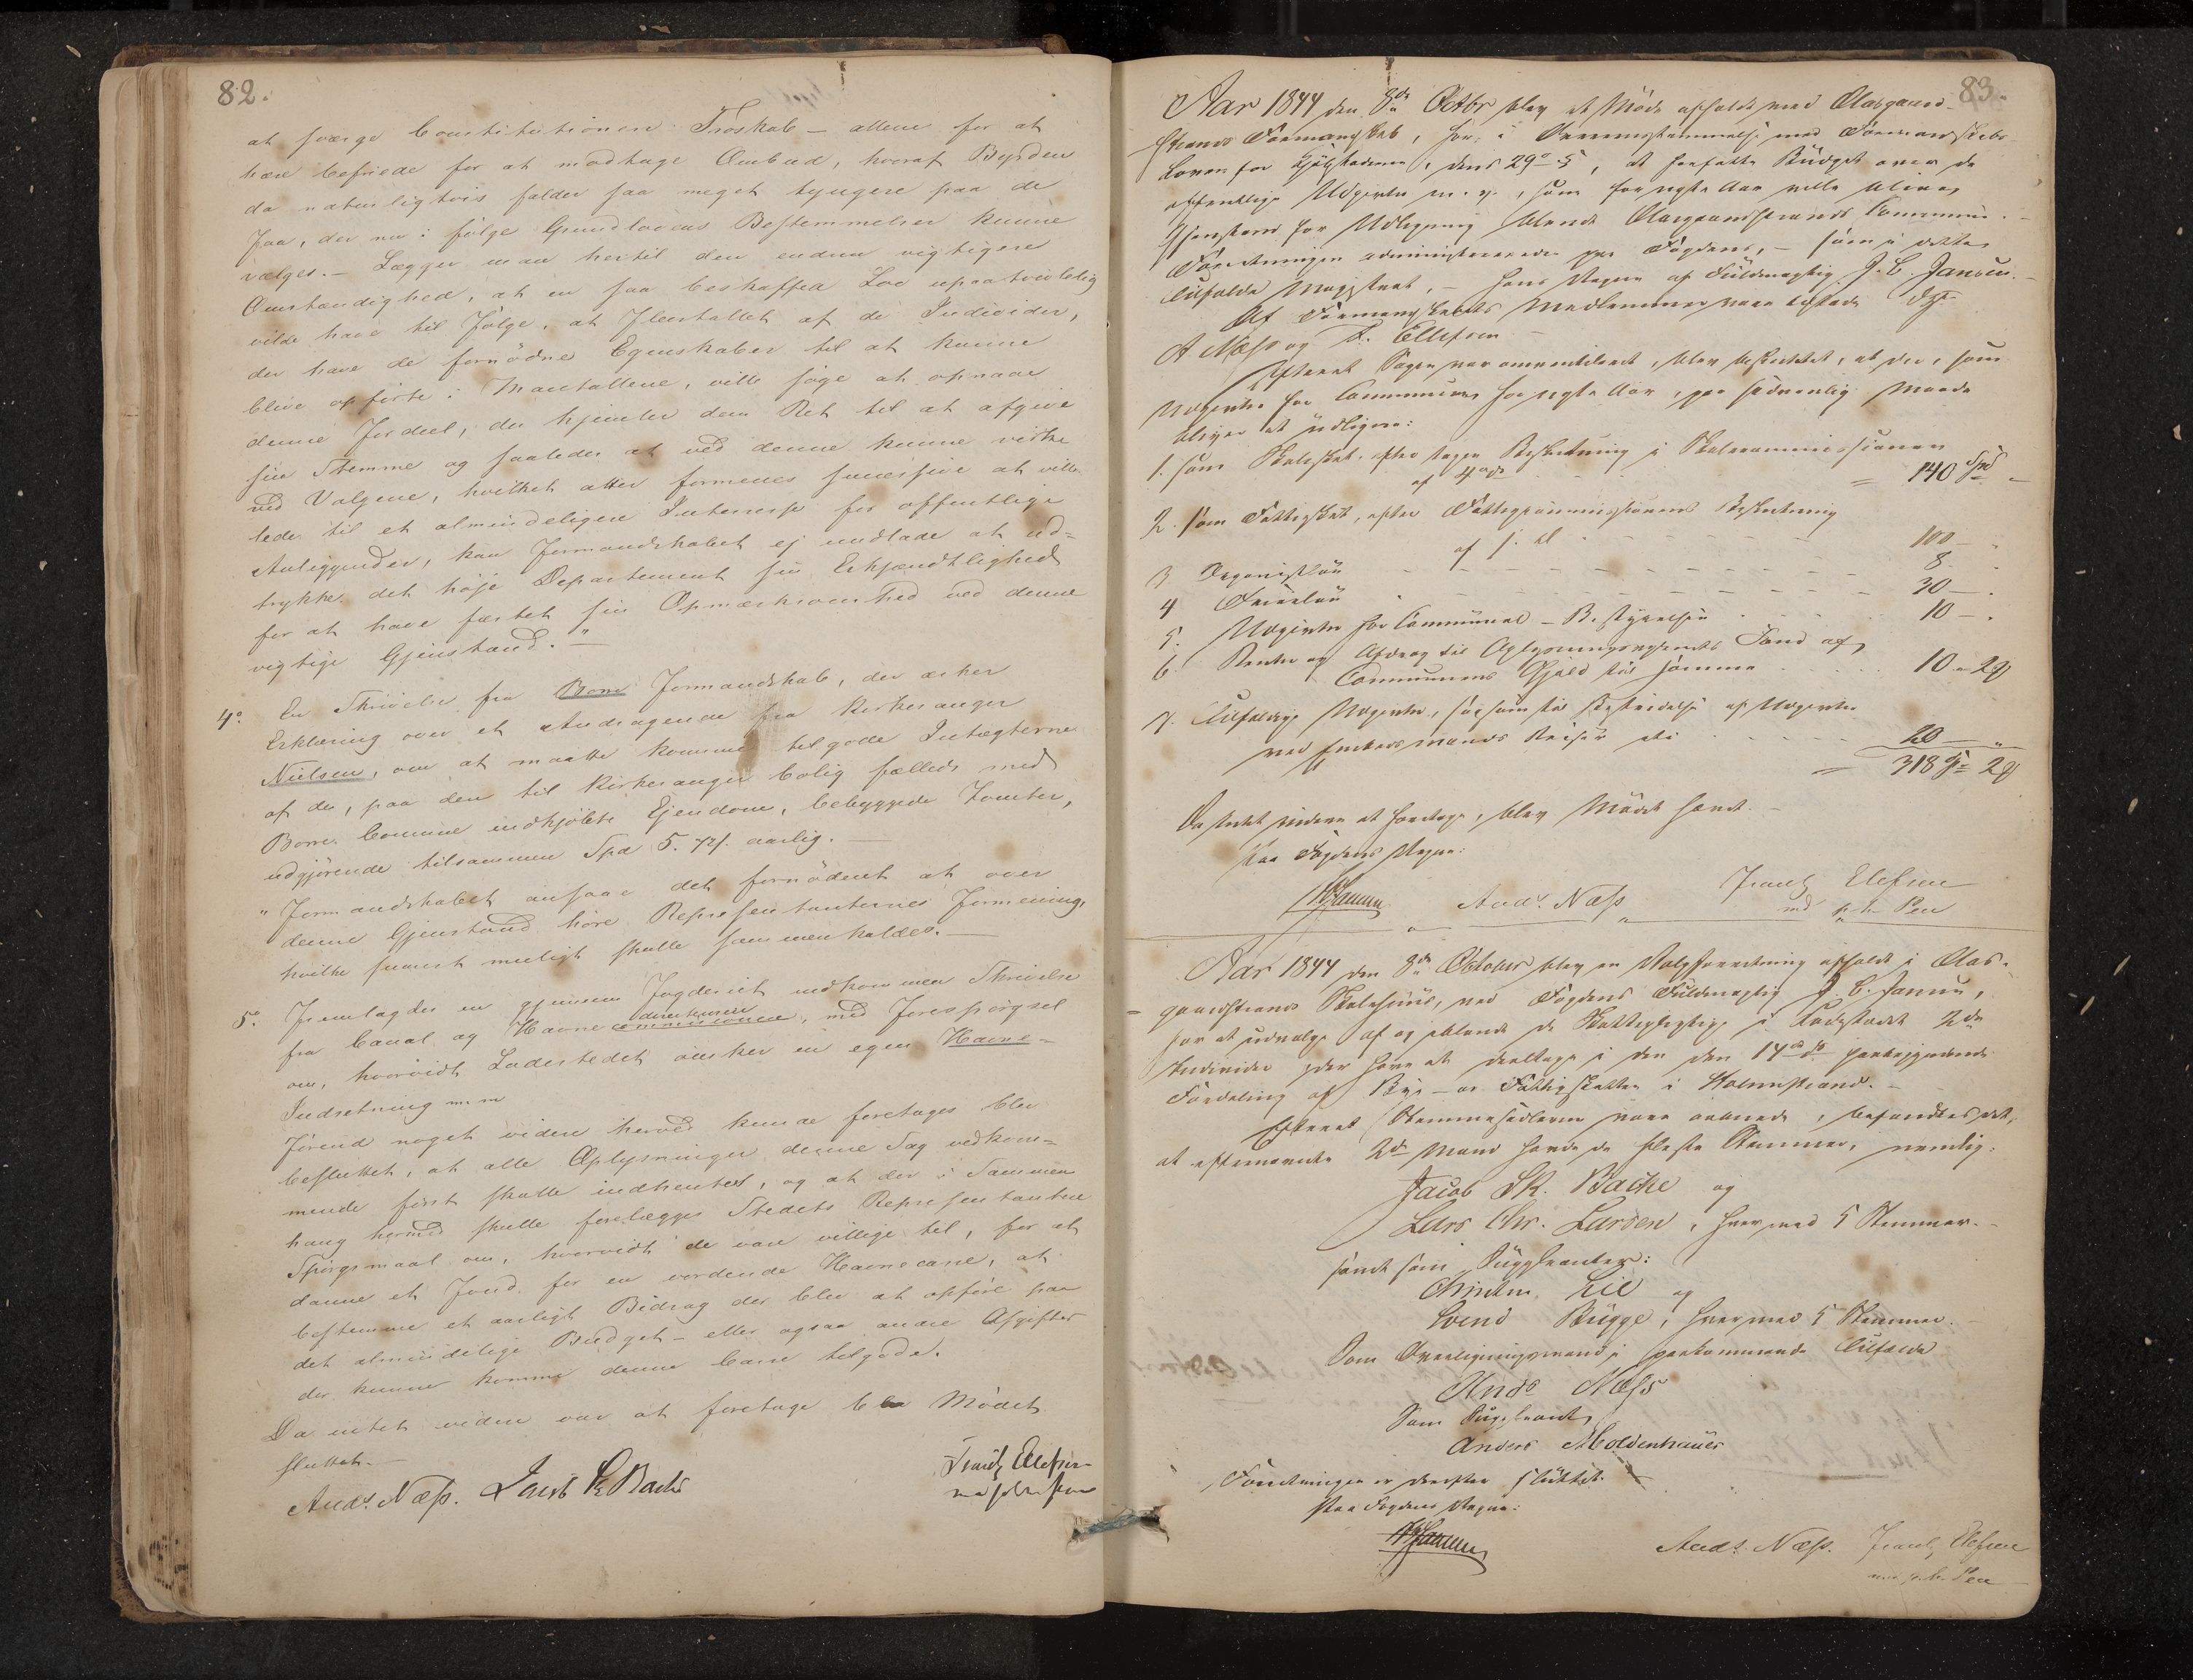 82.
at sværge Constitutionen Troskab – allene for at
være befriede for at modtage Ombud, hvoraf Byrden
da naturligtvis falder saa meget tyngere paa de
faa, der nu i følge Grundlovens Bestemmelser kunne
vælges. – Lægger man hertil den endnu vigtigere
Omstændighed, at en saa beskaffen Lov upaatvivlelig
vilde have til Følge, at Fleertallet af de Individer,
der have de fornødne Egenskaber til at kunne
blive opførte i Mantallene, ville søge at opnaae
denne Fordeel, der hjemler dem Ret til at afgive
sin Stemme og saaledes at ved denne kunne virke
ved Valgene, hvilket atter formenes successive at ville
lede til et almindeligere Interesse for offentlige
Anliggender, kan Formandskabet ej undlade at ud=
trykke det høje Departement sin Erkjændtlighed
for at have fæstet sin Opmærksomhed ved denne
vigtige Gjenstand." –
4o. En Skrivelse fra Borre Formandskab, der æsker
Erklæring over et Andragende fra Kirkesanger
Nielsen, om at maatte komme tilgode Indtægterne
af de, paa den til Kirkesanger bolig fælleds med
Borre Commune indkjøbte Ejendom, bebyggede Tomter,
udgjørende tilsammen Spd 5. 72 s. aarlig. –
"Formandskabet ansaae det fornødent at over
denne Gjenstand høre Repræsentanternes Formening,
hvilke snarest mueligt skulle sammenkaldes. –
5o. Fremlagdes en gjennem Fogderiet indkommen Skrivelse
fra Canal og Havne commissionen, med Forespørgsel
directeuren
om, hvorvidt Ladestedet ønsker en egen Havne-
Indretning m. m
Førend noget videre herved kunde foretages blev
besluttet, at alle Oplysninger denne Sag vedkom=
mende først skulle indhentes, og at der i Sammen
hang hermed skulle forelægges Stedets Repræsentantere
Spørgsmaal om, hvorvidt de vare villige til, for at
danne et Fond for en vordende Havnecasse, at
bestemme et aarligt Bidrag der blev at opføre paa
det almindelige Budget – eller ogsaa andre Afgifter
der kunne komme denne Casse tilgode.
Da intet videre var at foretage blev Mødet
sluttet. –
Ands. Næss. Jacob Sk Bache
Frantz Ellefsen
med paaholden Pen
83.
Aar 1844 den 8de Octbr blev et Møde afholdt med Aasgaard-
strands Formandskab, for, i Overensstemmelse med Formandskabs-
Loven for Kjøbstæderne, dens 29o §, at forfatte Budget over de
offentlige Udgivter m. v., som for næste Aar ville blive
Gjenstand for Udligning blandt Aasgaardstrands Commune. –
Forretningen administreredes paa Fogdens, – som i dette
Tilfælde Magistrat, – hans Vegne af Fuldmægtig J. C. Jansen. –
Af Formandskabets Medlemmer vare tilstede Dhr.
A Næss og F. Ellefsen –
Efterat Sagen var omventileret, blev besluttet, at der, som
Udgivter for Communen for næste Aar, paa sædvanlig Maade
bliver at udligne:
1. som Skoleskat, efter tagen Beslutning i Skolecommissionen
af 4de . . . . = 140 Spd –
2. som Fattigskat, efter Fattigcommissionens Beslutning
af s. d. - - - - - - 100 – .
3 Organistløn - - - - - - 8 . .
4 - - - - - - 30 – .
5. Udgivter for Communal-Bestyrelsen . . . . 10 – .
6. Renter og Afdrag til Oplysningsvæsenets Fond af
Communens Gjæld til samme . . . . 10 – 2 s
7. Tilfældige Udgivter, saasom til Bestridelse af Udgivter
ved Embedsmænds Reiser etc . . . . 20 – „
= 318 Spd 2 s
Da intet videre at foretage, blev Mødet hævet. –
Paa Fogdens Vegne:
JCJansen Ands. Næss Frantz Ellefsen
md p. h. Pen
Aar 1844 den 8de October blev en Valgforretning afholdt i Aas-
gaardstrands Skolehuus, ved Fogdens Fuldmægtig J. C. Jansen,
for at udvælge af og iblandt de Skattepligtige i Ladestedet 2de
Individer der have at deeltage i den den 14de ds. foregaaende
Fordeling af Bye- og Fattigskatten i Holmestrand. –
Efterat Stemmesedlerne vare aabnede, befandtes det,
at efternævnte 2de Mænd havde de fleste Stemmer, nemlig:
Jacob Sk. Bache og
Lars Chr. Larsen, hver med 5 Stemmer. –
samt som Suppleanter:
Lie og
Svend Bugge, hver med 5 Stemmer. –
Som Overligningsmand i forekommende Tilfælde
Ands Næss
Som Suppleant
Anders Moldenhauer
Forretningen er derefter sluttet. –
Paa Fogdens Vegne:
JCJansen
Ands. Næss. Frantz Ellefsen
md p. h. Pen